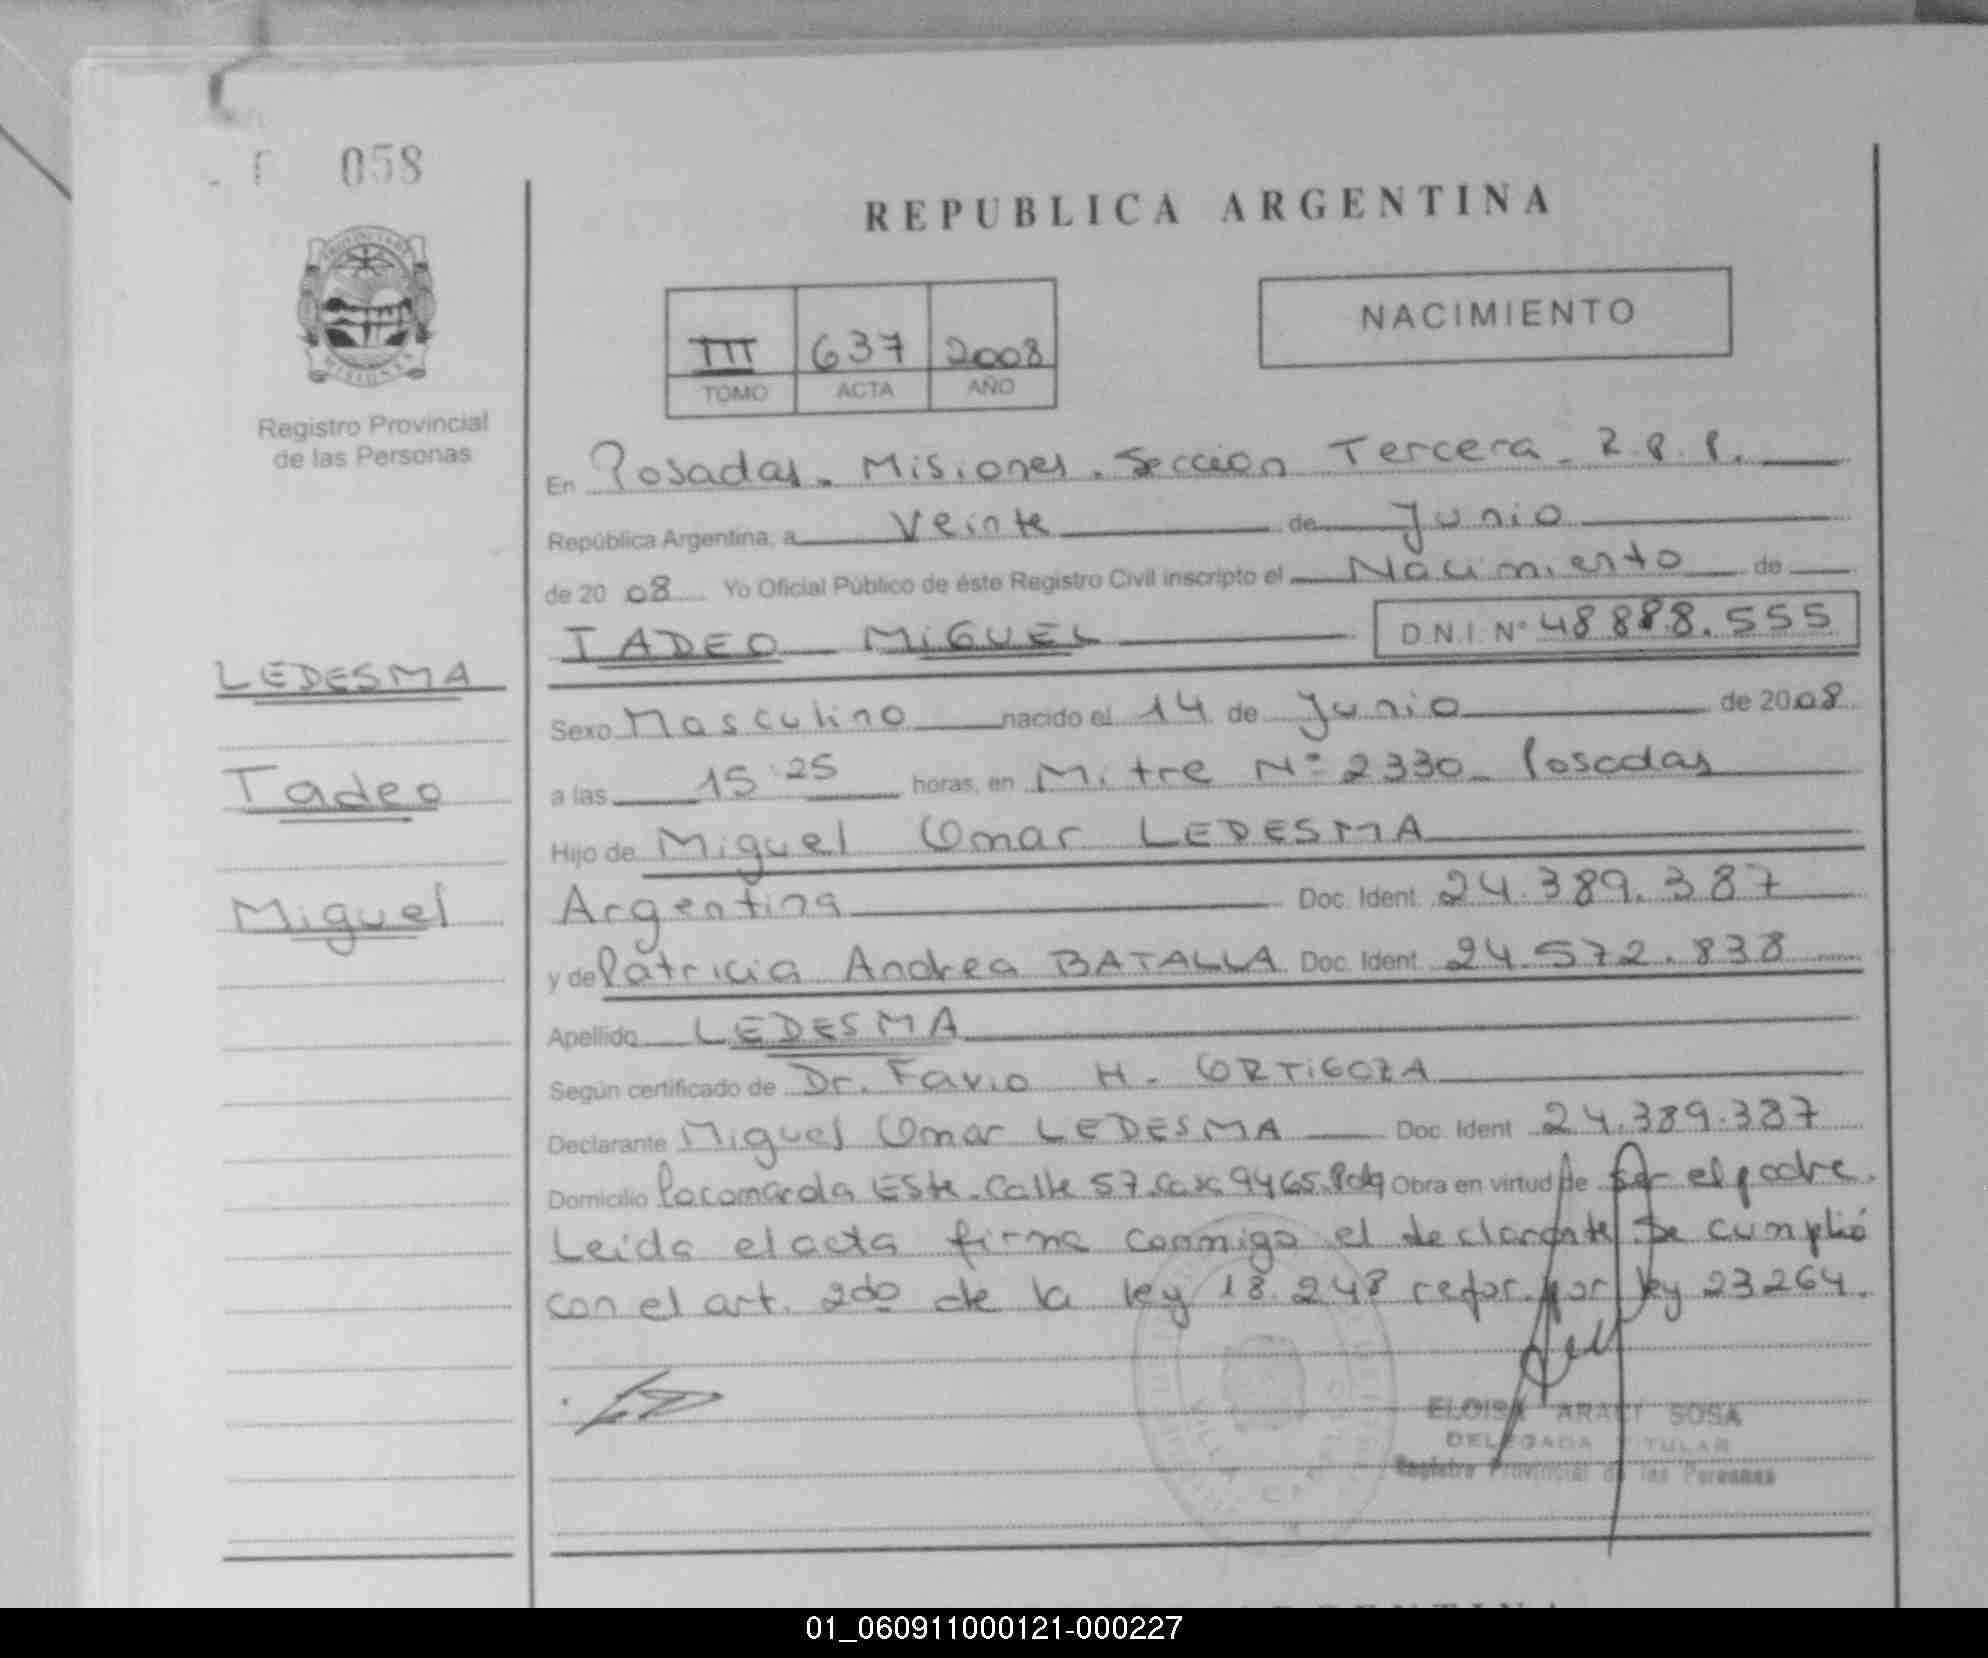 058
REPUBLICA ARGENTINA
NACIMIENTO
III 637 2008
TOMO ACTA AÑO
Registro Provincial
de las Personas
En Posadas. Misiones. Sección Tercera - R.P.P.
República Argentina, a Veinte de Junio
de 2008 Yo Oficial Público de éste Registro Civil inscripto el Nacimiento de
TADEO MIGUEL D.N.I. Nº 48888.555
LEDESMA
Tadeo
Miguel
Sexo Masculino nacido el 14 de Junio de 2008
a las 15:25 horas, en Mitre Nº 2330 - Posadas
Hijo de Miguel Omar LEDESMA
Argentina Doc. Ident. 24.389.387
y de Patricia Andrea BATALLA Doc. Ident. 24.572.838
Apellido LEDESMA
Según certificado de Dr. Favio H. ORTIGOZA
Declarante Miguel Omar LEDESMA Doc. Ident 24.389.387
Domicilio Este. Calle 57. Casa 9465. Pdas Obra en virtud de ser el padre.
Leida el acta firma conmigo el declarante Se cumplió
con el art. 2do de la ley 18.248 refor. por ley 23264.
ELOISA ARACI SOSA
DELEGADA TITULAR
Registro Provincial de las Personas
01_060911000121-000227